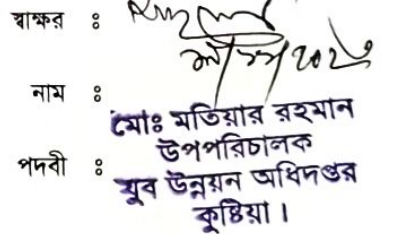 স্বাক্ষর :
নাম :
মোঃ মতিয়ার রহমান
উপপরিচালক
পদবী :
যুব উন্নয়ন অধিদপ্তর
কুষ্টিয়া।